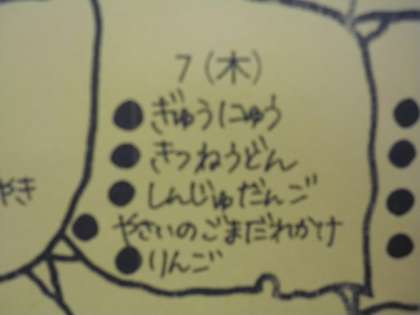 7(木)
●ぎゅうにゅう
●きつねうどん
●しんじゅだんご
●やさいのごまだれかけ
●りんご
やき